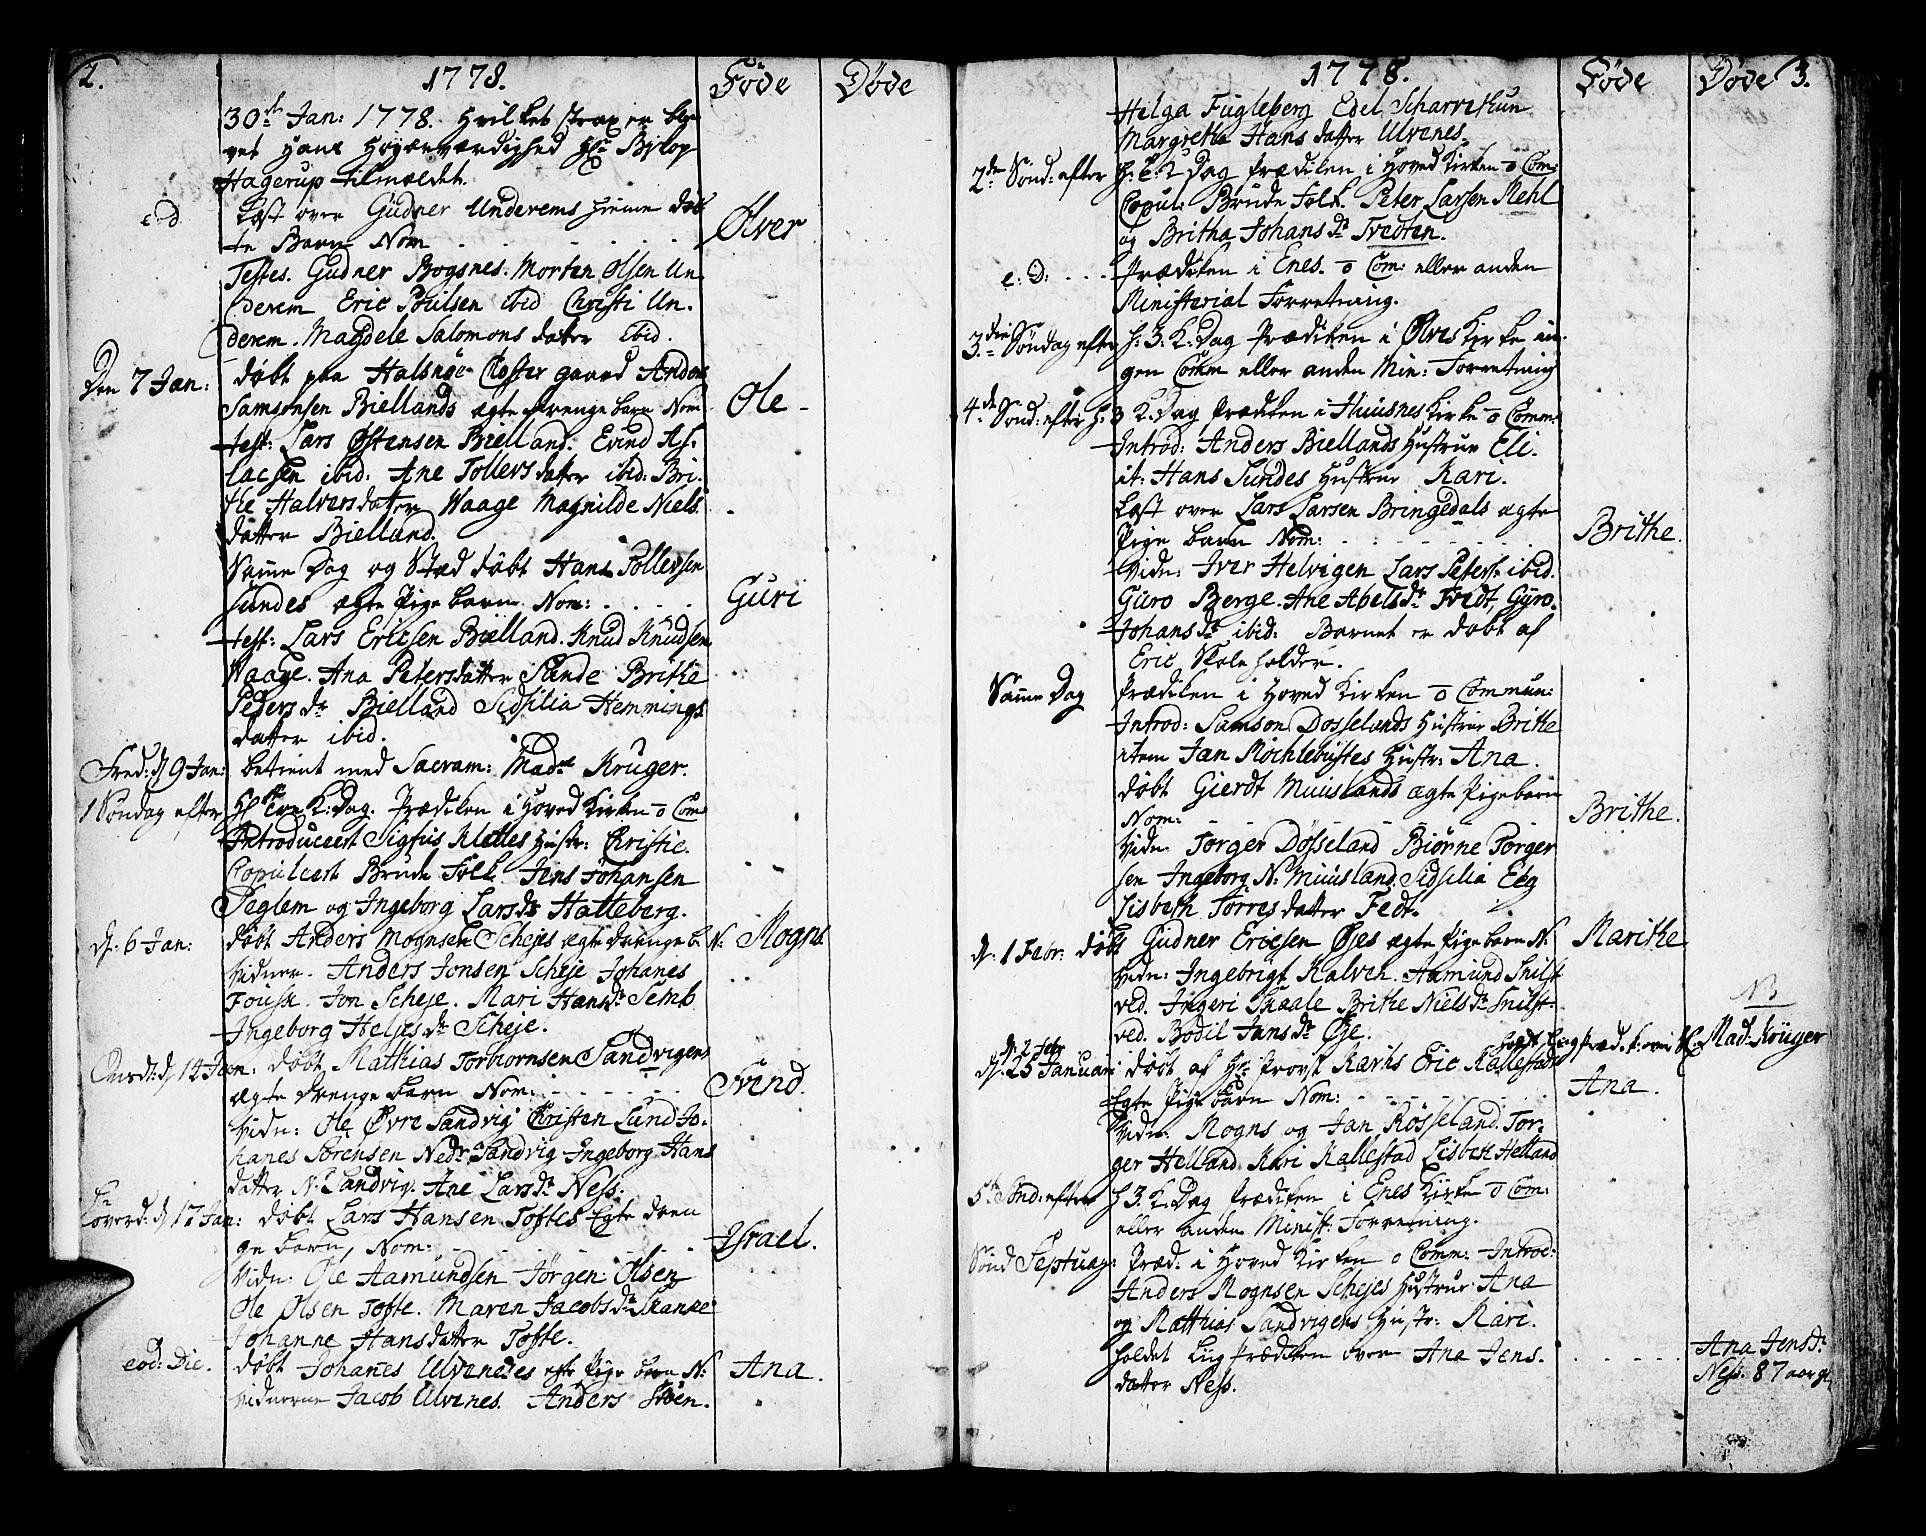 2.
1778.
Föde
Döde
30te Jan: 1778. Hvilket strax er ble-
vet Hans Høyærværdighed Hr Biskop
Hagerup tilmældet.
e:d
Læst over Gudner Underems hieme døb
te Barn Nom
Ølver
Testes. Gudner Bogsnes. Morten Olsen Un
derem Eric Poulsen ibid Christi Un.
derem. Magdele Salomons dater ibid.
Den 7 Jan:
døbt paa Halsnöe Closter gaard Anders
Samsonsen Biellands ægte drenge barn Nom
Ole -
test: Lars Østensen Bielland. Evind As.
lacsen ibid: Ane Tollevs dater ibid: Bri.
the Halversdatter Waage Magnilde Niels
datter Bielland.
Samme Dag og Stæd døbt Hans Tollevsen
Sundes ægte Pige barn. Nom:
Guri
test: Lars Ericsen Bielland. Knud Knudsen
Waage. Ana Petersdatter Sunde Brithe
Peders dr Bielland Sidsilia Hemmings
datter ibid.
Fred: d 9 Jan:
betient med Sacram: Madme Kruger.
1 Søndag efter
Hl Tre K: Dag. Prædiken i Hoved Kirken o Com
Introduceert Sigfus Klettes Hustr: Christie.
Copuleert Brude Folk Jens Johansen
Teglem og Ingeborg Lars dr Hatteberg.
d: 6 Jan:
døbt Anders Mognsen Schejes ægte drenge b. N:
Mogns
Vidner. Anders Jonsen Scheje Johanes
Fouss. Jon Scheje. Mari Hansdr Semb
Ingeborg Heljes dr Scheje.
Onsd: d 14 Jan:
døbt Mathias Torbiornsen Sandvigens
ægte drenge barn Nom:
Svend.
Vidn: Ole Øvre Sandvig Christen Lund Jo.
hanes Sørensen Nedr Sandvig Ingeborg Hans
datter N. Sandvig. Ane Lars dr Ness.
Loverd: d 17 Jan:
døbt Lars Hansen Toftes Egte dren
ge barn, Nom:
Israel.
Vidn: Ole Aamundsen Jørgen Olsen
Ole Olsen Tofte. Maren Jacobs dr Skanke
Johanne Hansdatter Tofte.
eod: Die.
døbt Johanes Ulvenes ægte Pige barn N:
Ana.
vidnerne Jacob Ulvenes. Anders Støen.
1778.
Föde
Döde 3.
Helga Fugleberg Edel Scharvetun
Margrethe Hans datter Ulvenes.
2den Sønd: efter
H: 3 K Dag Prædiken i Hoved Kirken o Com:
Copul: Brude Folk. Peter Larsen Mehl
og Britha Johans dr Tvedten.
e: D:
Prædiken i Enes. o Com: eller anden
Ministerial Forretning.
3die Søndag efter
H: 3: K: Dag Prædiken i Ølves Kirke in.
gen Comm eller anden Min: Forretning
4de Sønd: efter
H: 3 K: Dag Prædiken i Huusnes Kirke o Comm:
Introd: Anders Biellands Hustrue Eli.
it: Hans Sundes Hustrue Kari.
Læst over Lars Larsen Bringedals ægte
Pige barn Nom:
Brithe.
Vidn: Iver Helvigen Lars Peters: ibid.
Guro Berge. Ane Abels dr Tvedt, Gyro
Johans dr ibid: Barnet er døbt af
Eric Skoleholder.
Samme Dag
Prædiken i Hoved Kirken o Commun:
Introd: Samson Dosselands Hustrue Brithe
item Jan Röchlebustes Hustr: Ana.
døbt Gierdt Muuslands ægte Pigebarn
Nom:
Brithe.
Vidn. Torger Dosseland Biørne Torger
sen Ingeborg N: Muusland. Sidsilia Eeg
Lisbeth Torresdatter Fedt.
d: 1 Febr:
døbt Gudner Ericsen Øjes ægte Pige barn N:
Marithe
Vidn: Ingebrigt Kalven. Aamund Snilst
ved. Ingeri Skaale Brithe Niels dr Snilst-
ved. Bodil Jans dr Øje.
NB
d: 2 Febr
holdt Liig Præd:k: over
Mad: Krüger
d: 25 Januari
døbt af Hr Provst Rarhs Eric Kallestads
Egte Pige barn Nom:
Ana.
Vidn: Mogns og Jan Rösseland. Tor-
ger Helland Kari Kallestad Lisbeth Helland
5te Sønd: efter
H 3. K: Dag Prædiken i Enes Kirke o Com:
eller anden Minist: Forretning.
Sønd Septuag:
Præd: i Hoved Kirken o Comm: Introd:
Anders Mognsen Schejes Hustrue Ana
og Matthias Sandvigens Hustr: Kari.
holdet Liig Prædiken over Ana Jens.
Ana Jensdr
datter Ness.
Ness. 87 aar gl